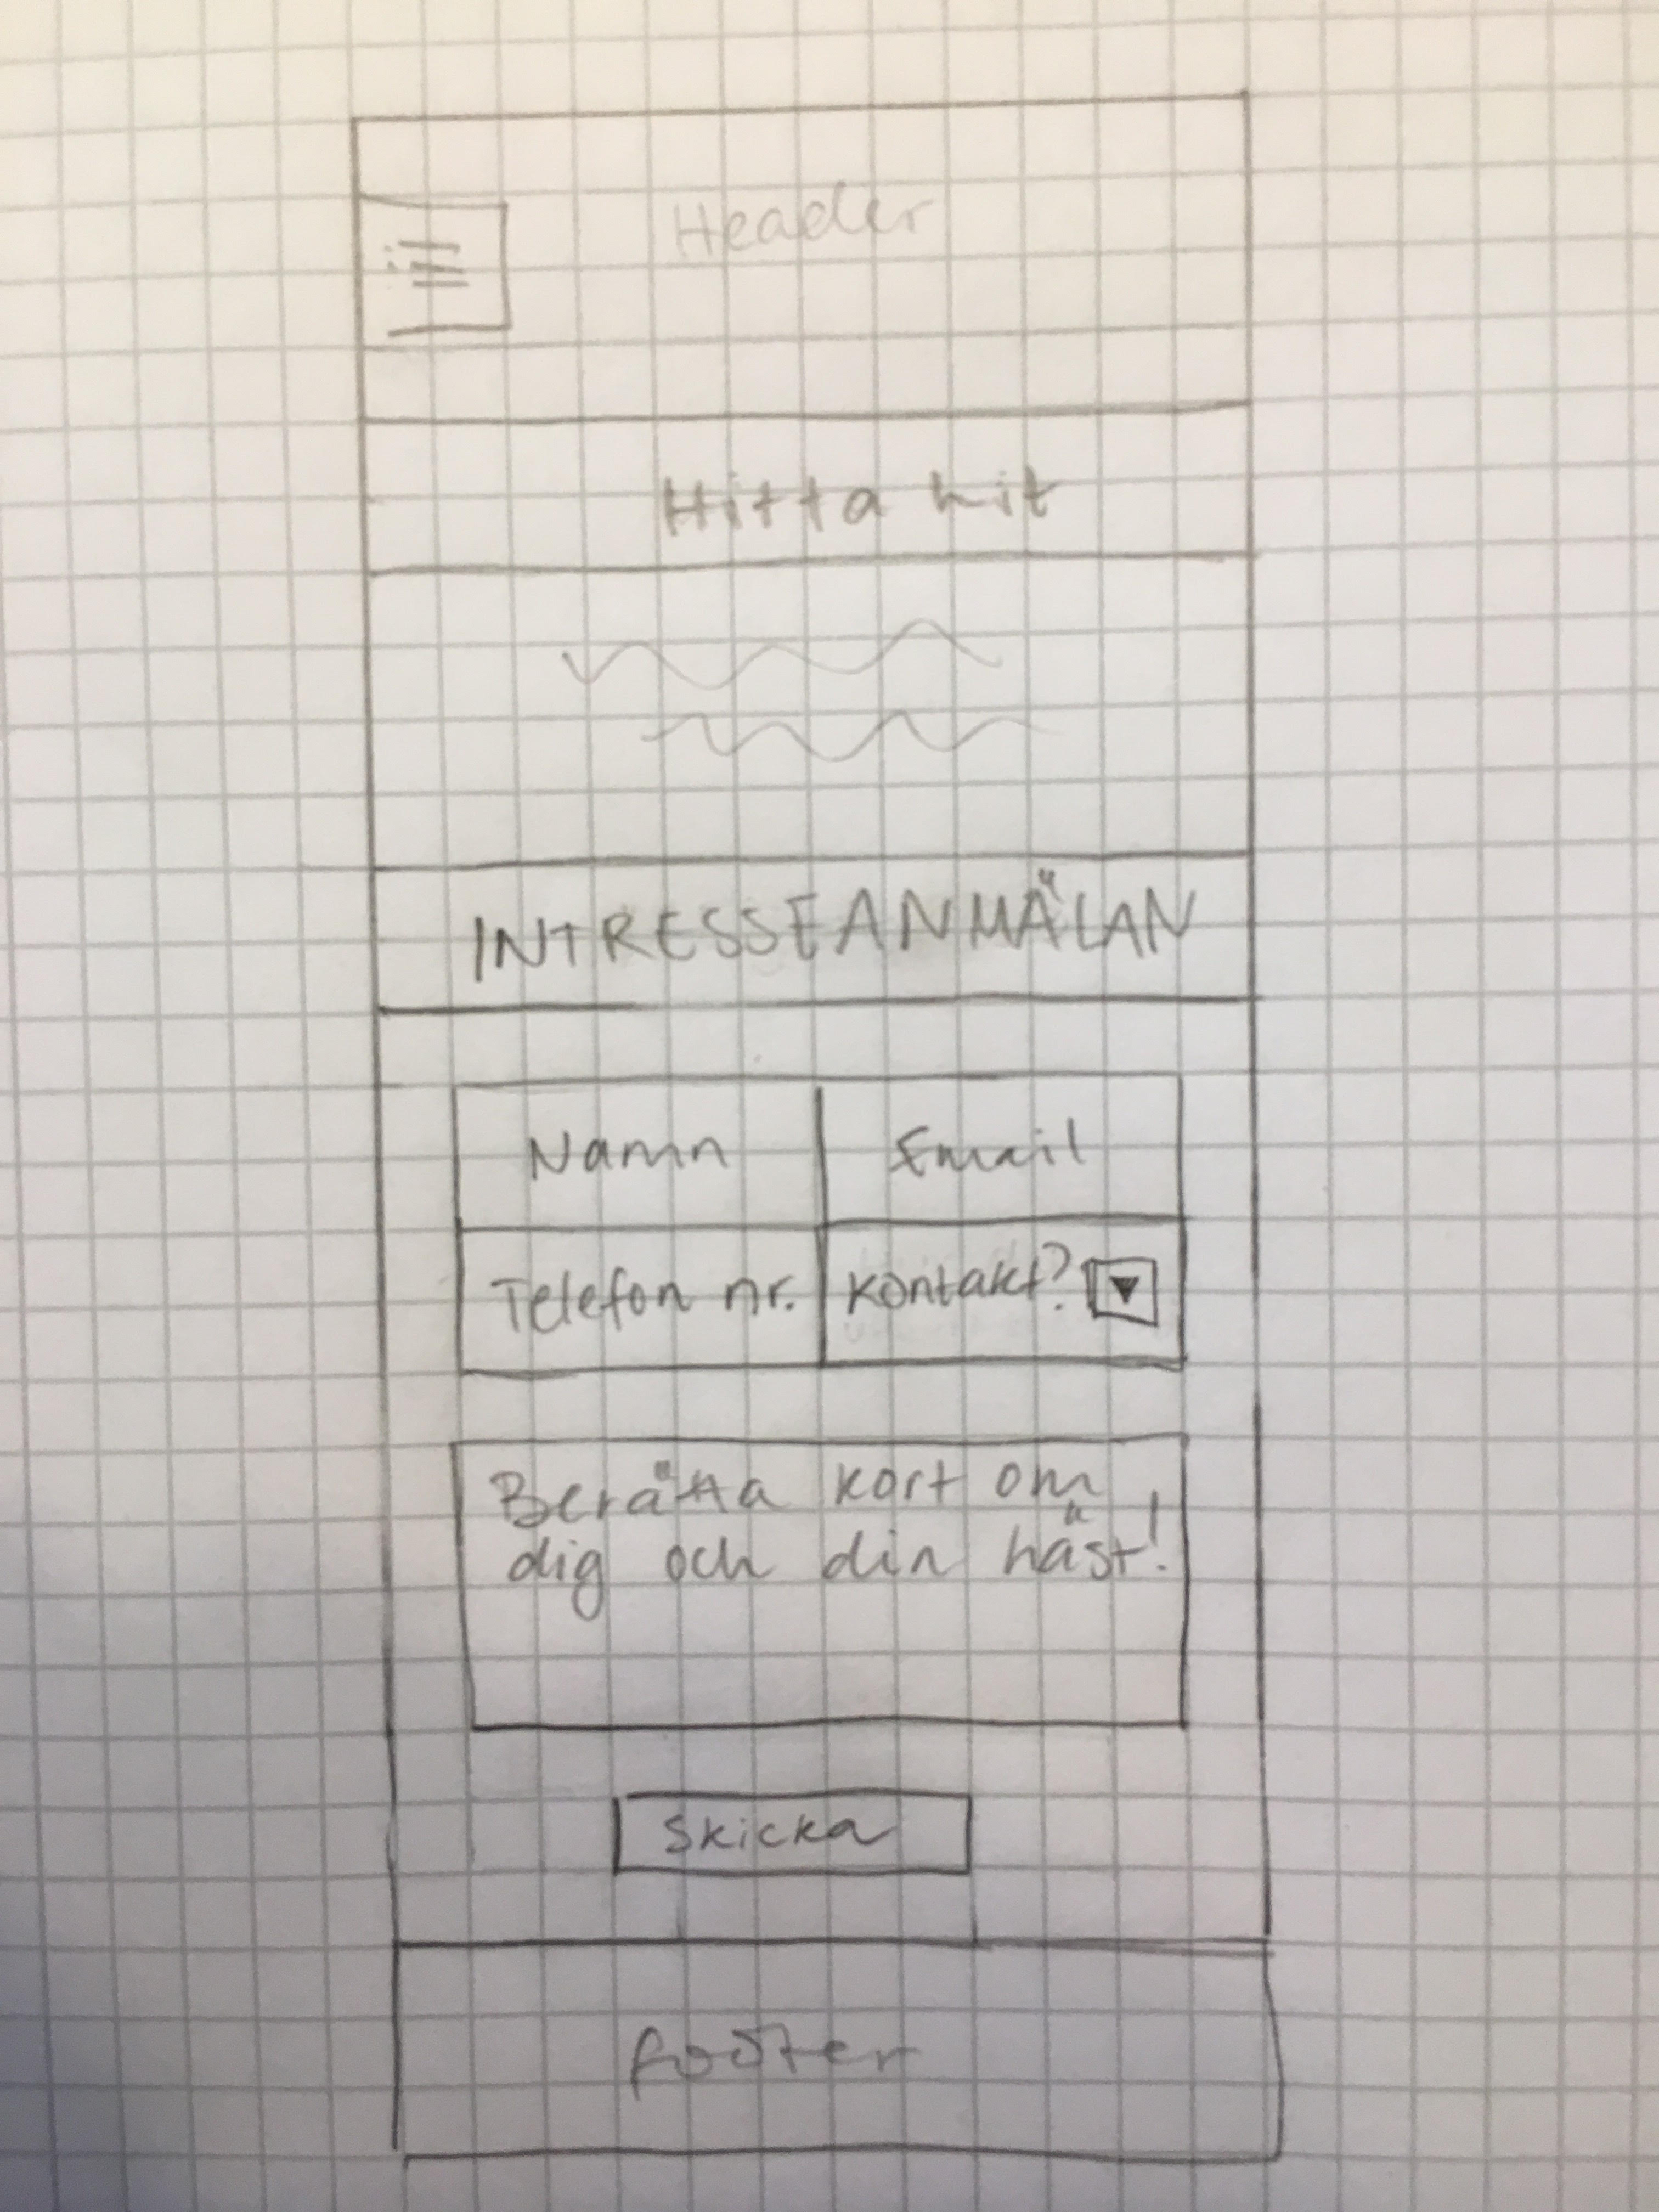 Header
Hitta hit
INTRESSEANMÄLAN
Namn
Email
Telefon nr.
Kontakt?
Berätta kort om
dig och din häst!
Skicka
footer